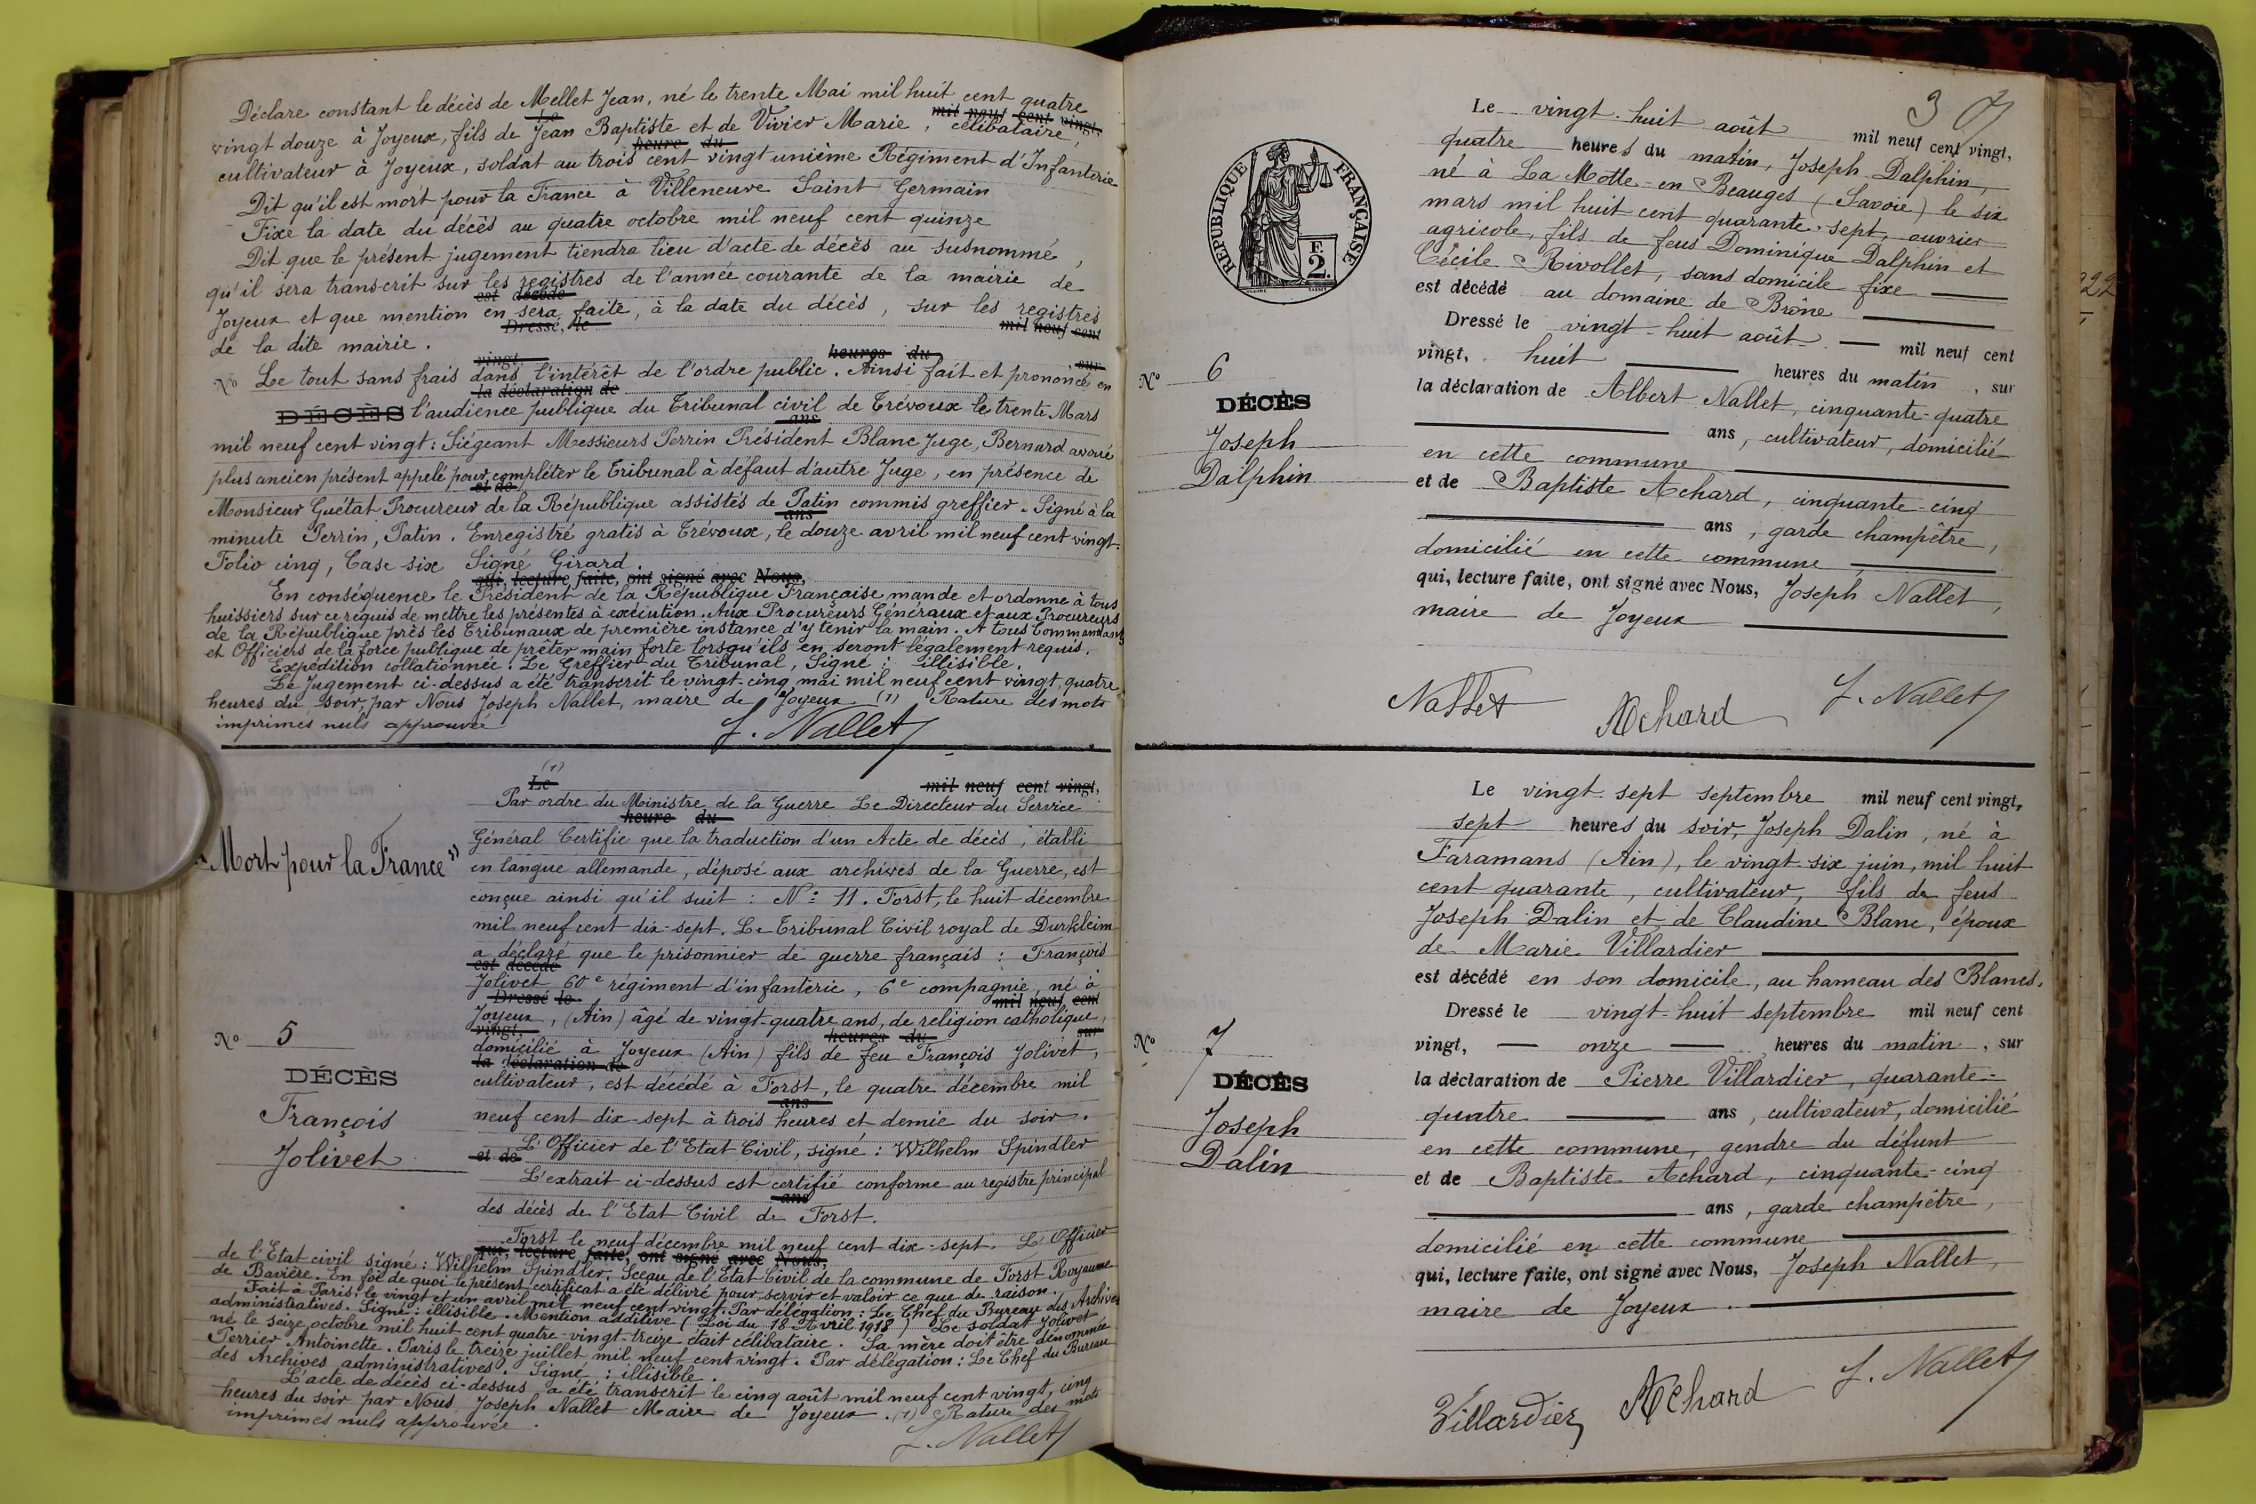 Déclare constant le décès de Mellet Jean, né le trente Mai mil huit cent quatre
Le mil neuf cent vingt,
vingt douze à Joyeux, fils de Jean Baptiste et de Vivier Marie, célibataire,
heure du
cultivateur à Joyeux, soldat au trois cent vingt unième Régiment d'Infanterie
Dit qu'il est mort pour la France à Villeneuve Saint Germain
Fixe la date du décès au quatre octobre mil neuf cent quinze
Dit que le présent jugement tiendra lieu d'acte de décès au susnommé,
qu'il sera transcrit sur les registres de l'année courante de la mairie de
est décédé
Joyeux et que mention en sera faite, à la date du décès, sur les registres
Dressé, le mil neuf cent
de la dite mairie.
vingt, heures du , sur
No Le tout sans frais dans l'intérêt de l'ordre public. Ainsi fait et prononcé en
la déclaration de
DÉCÈS l'audience publique du Tribunal civil de Trévoux le trente Mars
ans
mil neuf cent vingt: Siégeant Messieurs Perrin Président Blanc Juge, Bernard avoué
plus ancien présent appelé pour compléter le Tribunal à défaut d'autre Juge, en présence de
et de
Monsieur Guétat Procureur de la République assistés de Patin commis greffier. Signé à la
ans
minute Perrin, Patin. Enregistré gratis à Trévoux, le douze avril mil neuf cent vingt.
Folio cinq, Case six Signé Girard.
qui, lecture faite, ont signé avec Nous,
En conséquence le Président de la République Française mande et ordonne à tous
huissiers sur ce requis de mettre les présentes à exécution. Aux Procureurs Généraux et aux Procureurs
de la République près les Tribunaux de première instance d'y tenir la main. A tous Commandants
et Officiers de la force publique de prêter main forte lorsqu'ils en seront légalement requis.
Expédition collationnée. Le Greffier du Tribunal, Signé: illisible.
Le Jugement ci-dessus a été transcrit le vingt-cinq mai mil neuf cent vingt, quatre
heures du soir, par Nous Joseph Nallet, maire de Joyeux. (1) Rature des mots
imprimés nuls approuvée
J. Nallet
(1)
Le mil neuf cent vingt,
Par ordre du Ministre de la Guerre Le Directeur du Service
heure du
Général Certifie que la traduction d'un Acte de décès, établi
"Mort pour la France"
en langue allemande, déposé aux archives de la Guerre, est
conçue ainsi qu'il suit: No: 11. Forst, le huit décembre
mil neuf cent dix-sept. Le Tribunal Civil royal de Durkleim
a déclaré que le prisonnier de guerre français: François
est décédé
Jolivet 60e régiment d'infanterie, 6e compagnie, né à
Dressé le mil neuf cent
Joyeux, (Ain) âgé de vingt-quatre ans, de religion catholique,
vingt, heures du sur
No 5
domicilié à Joyeux (Ain) fils de feu François Jolivet,
la déclaration de
DÉCÈS
cultivateur, est décédé à Forst, le quatre décembre mil
ans
François
neuf cent dix-sept à trois heures et demie du soir.
Jolivet
L'Officier de l'Etat Civil, signé: Wilhelm Spindler
et de
L'extrait ci-dessus est certifié conforme au registre principal
ans
des décès de l'Etat Civil de Forst.
Forst le neuf décembre mil neuf cent dix-sept L'Officier
qui, lecture faite, ont signé avec Nous,
de l'Etat civil signé: Wilhelm Spindler. Sceau de l'Etat Civil de la commune de Forst Royaume
de Bavière. En foi de quoi le présent certificat a été délivré pour servir et valoir ce que de raison.
Fait à Paris, le vingt et un avril mil neuf cent vingt. Par délégation: Le Chef du Bureau des Archives
administratives. Signé: illisible. Mention additive (Loi du 18 Avril 1918) Le soldat Jolivet
né le seize octobre mil huit cent quatre-vingt-treize était célibataire. Sa mère doit être dénommée
Perrier Antoinette. Paris le treize juillet mil neuf cent vingt. Par délégation: Le Chef du Bureau
des Archives administratives. Signé: illisible.
L'acte de décès ci-dessus a été transcrit le cinq août mil neuf cent vingt, cinq
heures du soir par Nous Joseph Nallet Maire de Joyeux. (1) Rature des mots
imprimés nuls approuvée.
J. Nallet
3
Le vingt-huit août mil neuf cent vingt,
quatre heures du matin, Joseph Dalphin,
né à La Motte-en Beauges (Savoie) le six
mars mil huit cent quarante-sept, ouvrier
agricole, fils de feus Dominique Dalphin et
Cécile Rivollet, sans domicile fixe
est décédé au domaine de Brône
RÉPUBLIQUE FRANÇAISE
F.
2.
Dressé le vingt-huit août mil neuf cent
vingt, huit heures du matin, sur
No 6
la déclaration de Albert Nallet, cinquante-quatre
DÉCÈS
ans, cultivateur, domicilié
Joseph
en cette commune
Dalphin
et de Baptiste Achard, cinquante-cinq
ans, garde champêtre,
domicilié en cette commune
qui, lecture faite, ont signé avec Nous, Joseph Nallet,
maire de Joyeux
Nallet Achard J. Nallet
Le vingt-sept septembre mil neuf cent vingt,
sept heures du soir, Joseph Dalin, né à
Faramans (Ain), le vingt-six juin, mil huit
cent quarante, cultivateur, fils de feus
Joseph Dalin et de Claudine Blanc, époux
de Marie Villardier
est décédé en son domicile, au hameau des Blancs.
Dressé le vingt-huit septembre mil neuf cent
No 7
vingt, onze heures du matin, sur
DÉCÈS
la déclaration de Pierre Villardier, quarante-
Joseph
quatre ans, cultivateur, domicilié
Dalin
en cette commune, gendre du défunt
et de Baptiste Achard, cinquante-cinq
ans, garde champêtre,
domicilié en cette commune
qui, lecture faite, ont signé avec Nous, Joseph Nallet,
maire de Joyeux.
Villardier Achard J. Nallet